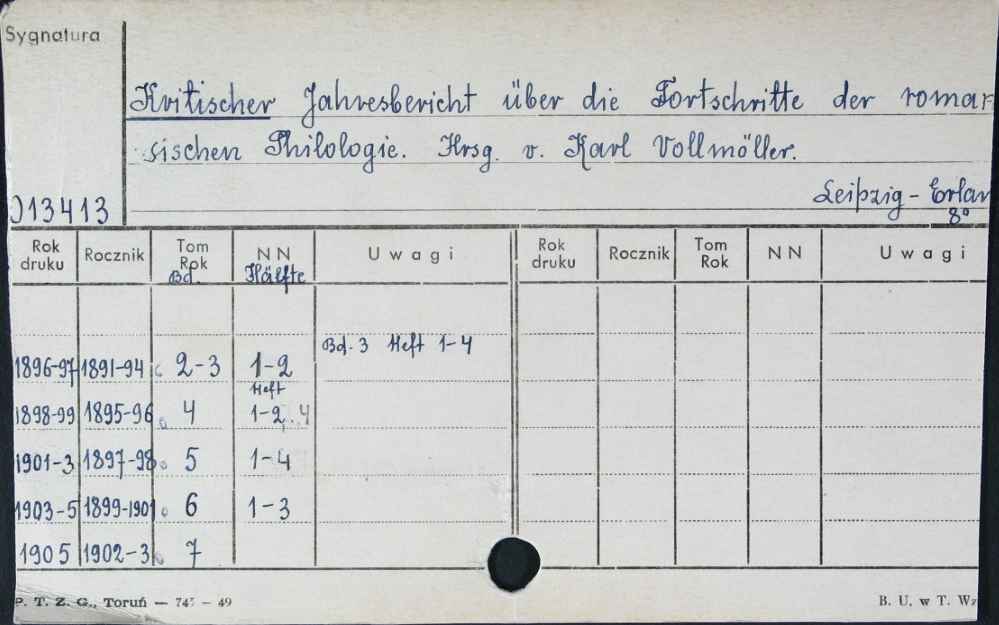 Sygnatura
Kritischer Jahresbericht über die Fortschritte der roman
sischen Philologie. Hrsg. v. Karl Vollmöller.
Leipzig - Erlan
013413 8°
Rok druku Rocznik Tom Rok Bd. NN Hälfte Uwagi Rok druku Rocznik Tom Rok NN Uwagi
Bd. 3 Heft 1-4
1896-97 1891-94 2-3 1-2
Heft
1898-99 1895-96 4 1-2.4
1901-3 1897-98 5 1-4
1903-5 1899-1901 6 1-3
1905 1902-3 7
P. T. Z. G., Toruń — 745 — 49 B. U. w T. Wz